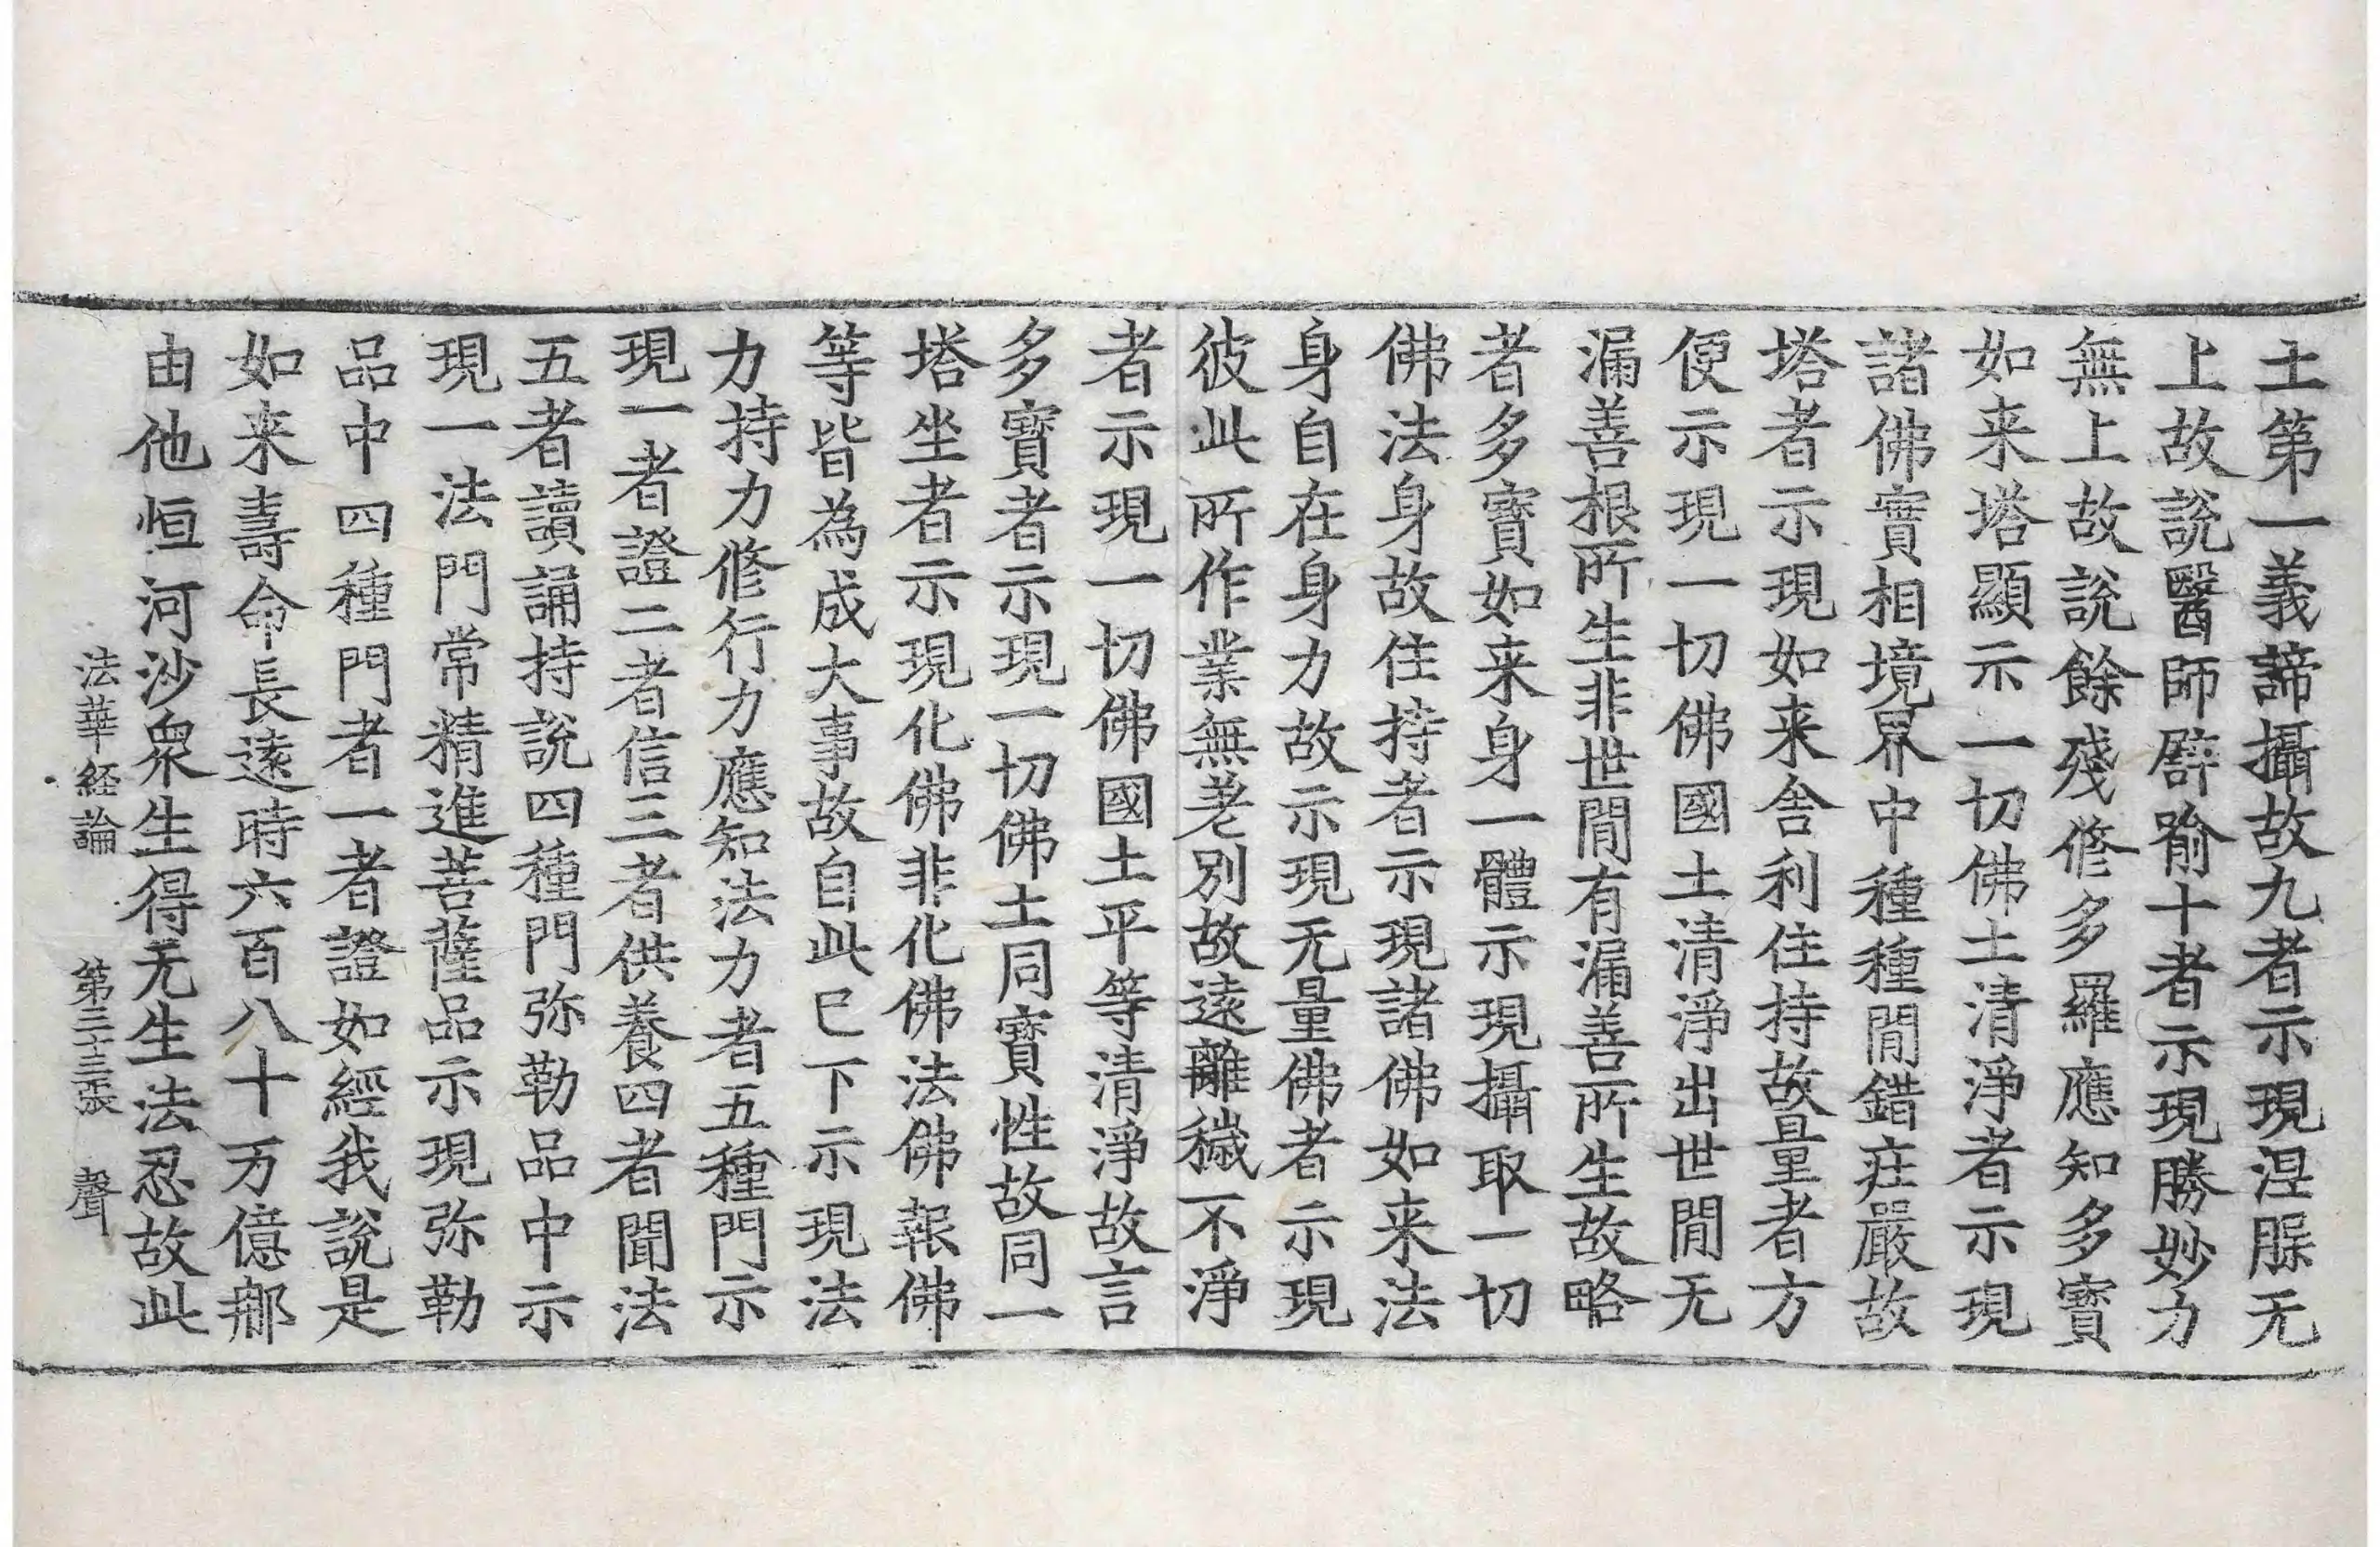 土第一義諦攝故九者示現涅槃无
上故說醫師譬喻十者示現勝妙力
無上故說餘殘修多羅應知多寶
如来塔顯示一切佛土清淨者示現
諸佛實相境界中種種閒錯莊嚴故
塔者示現如来舍利住持故量者方
便示現一切佛國土清淨出世閒无
漏善根所生非世閒有漏善所生故略
者多寶如来身一體示現攝取一切
佛法身故住持者示現諸佛如来法
身自在身力故示現无量佛者示現
彼此所作業無差別故遠離穢不淨
者示現一切佛國土平等清淨故言
多寶者示現一切佛土同寶性故同一
塔坐者示現化佛非化佛法佛報佛
等皆為成大事故自此已下示現法
力持力修行力應知法力者五種門示
現一者證二者信三者供養四者聞法
五者讀誦持說四種門弥勒品中示
現一法門常精進菩薩品示現弥勒
品中四種門者一者證如經我說是
如来壽命長遠時六百八十万億那
由他恒河沙眾生得无生法忍故此
法華経論 第二十三張 聲